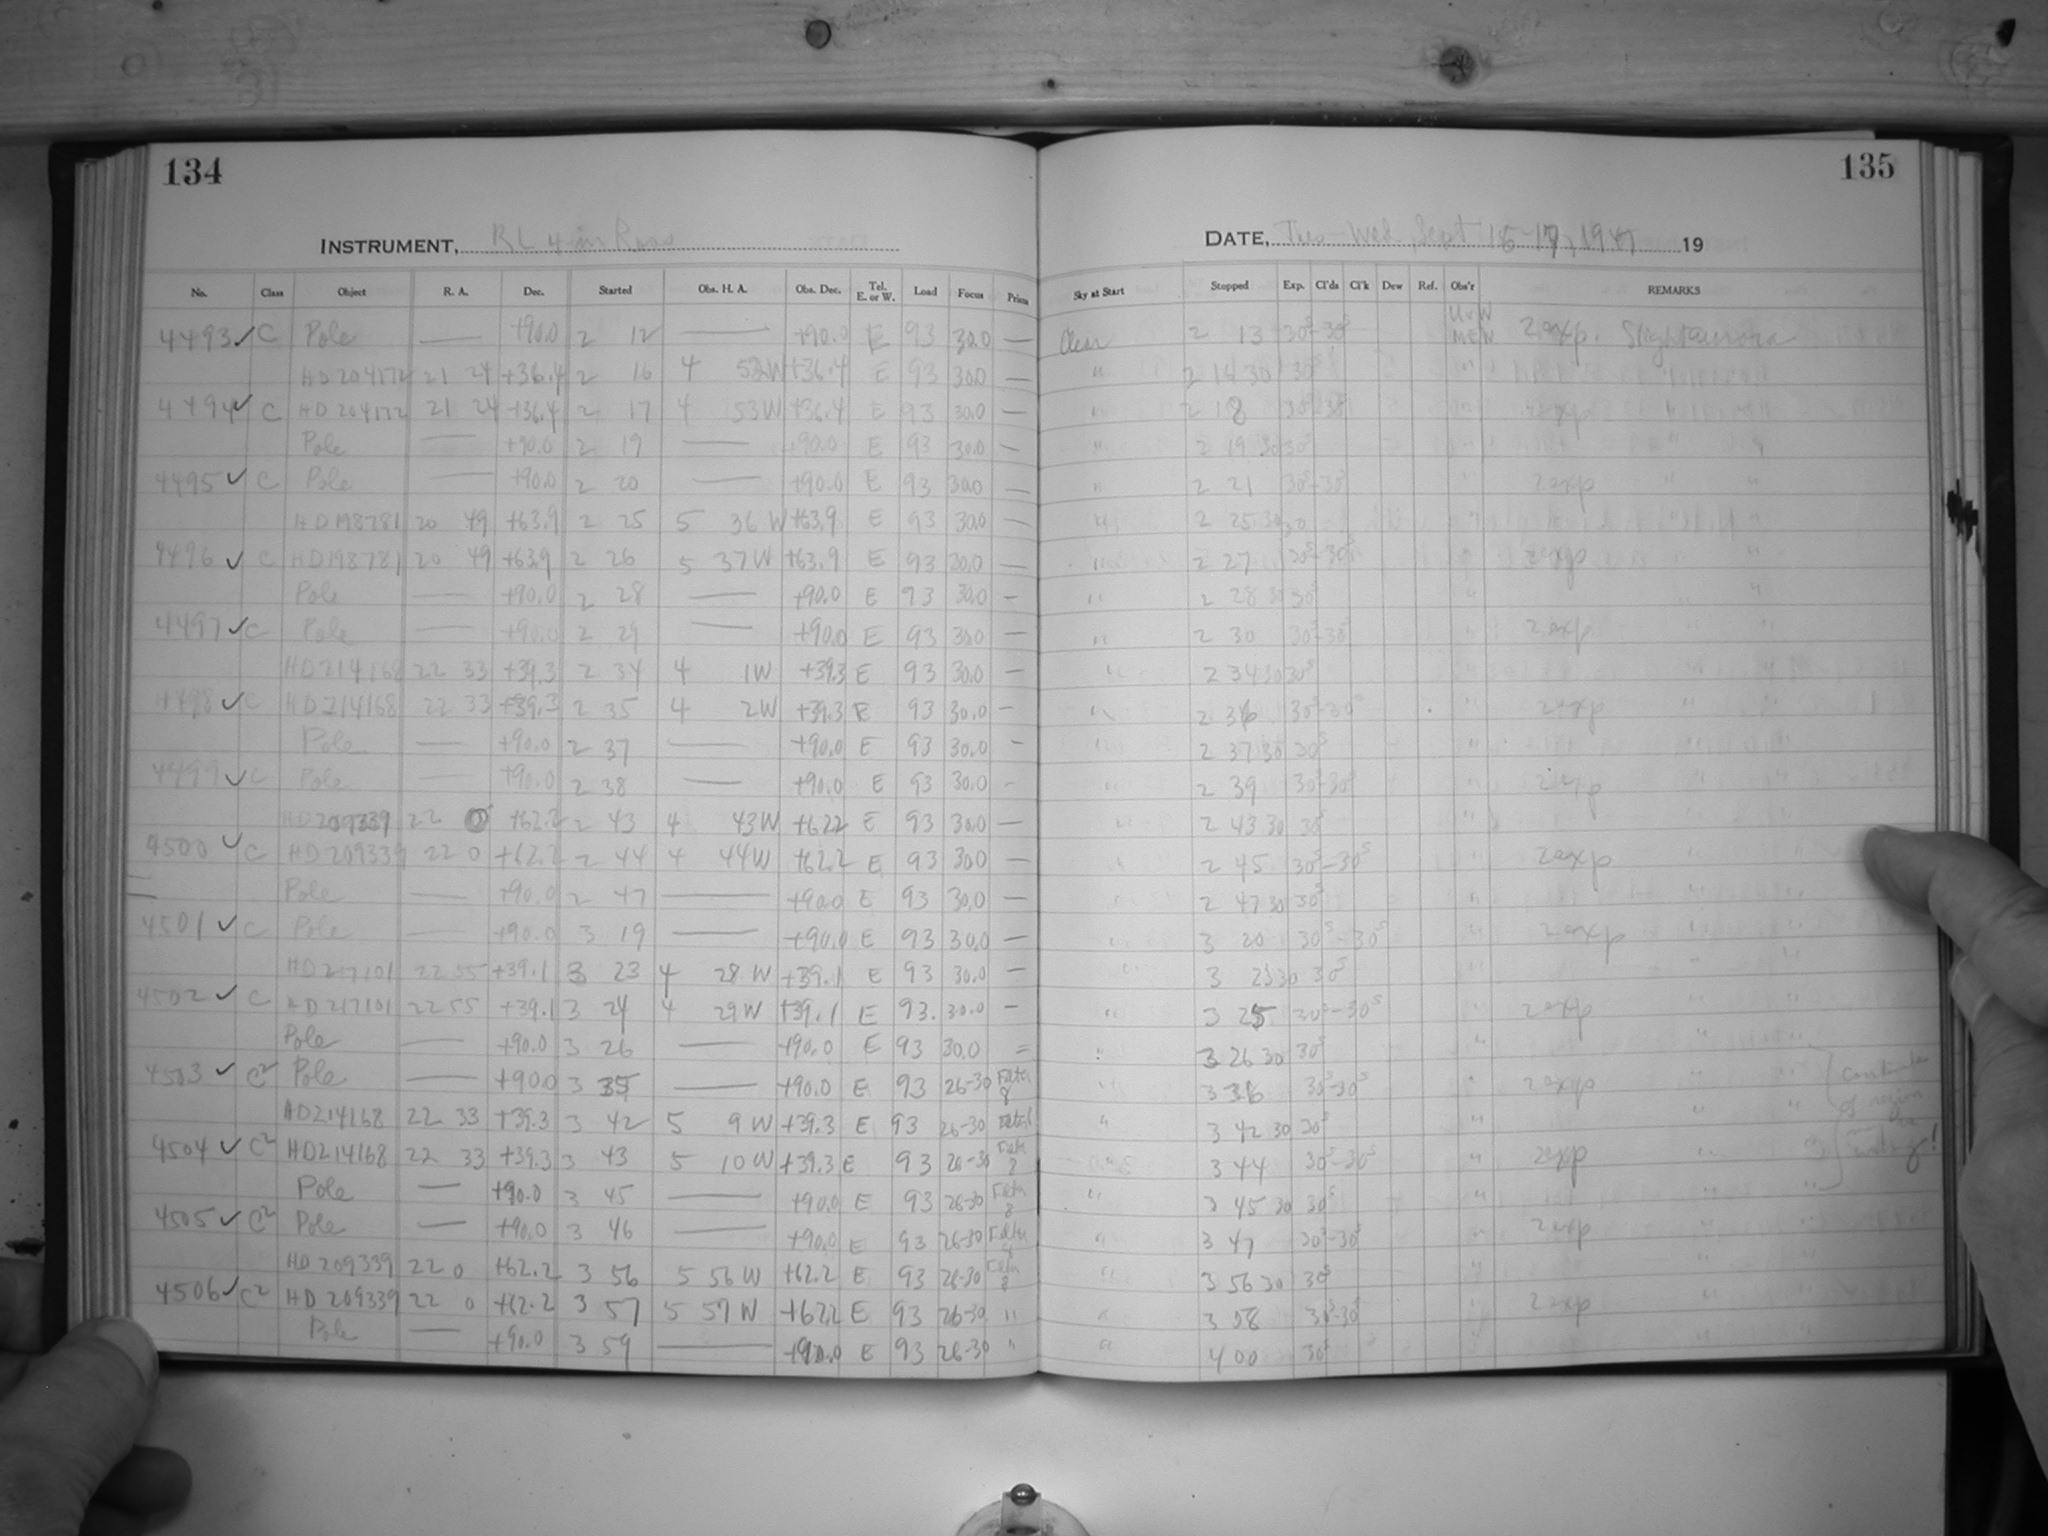 134
INSTRUMENT, RL 4 in Ross
No. Class Object R. A. Dec. Started Obs. H. A. Obs. Dec. Tel. E. or W. Load Focus Prism
4493 ✓ C Pole — +90.0 2 12 — +90.0 E 93 30.0 —
HD 204172 21 24 +36.4 2 16 4 52W +36.4 E 93 30.0 —
4494 ✓ C HD 204172 21 24 +36.4 2 17 4 53W +36.4 E 93 30.0 —
Pole — +90.0 2 19 — +90.0 E 93 30.0 —
4495 ✓ C Pole — +90.0 2 20 — +90.0 E 93 30.0 —
HD198781 20 49 +63.9 2 25 5 36W +63.9 E 93 30.0 —
4496 ✓ C HD198781 20 49 +63.9 2 26 5 37W +63.9 E 93 30.0 —
Pole — +90.0 2 28 — +90.0 E 93 30.0 —
4497 ✓ C Pole — +90.0 2 29 — +90.0 E 93 30.0 —
HD214168 22 33 +39.3 2 34 4 1W +39.3 E 93 30.0 —
4498 ✓ C HD214168 22 33 +39.3 2 35 4 2W +39.3 E 93 30.0 —
Pole — +90.0 2 37 — +90.0 E 93 30.0 —
4499 ✓ C Pole — +90.0 2 38 — +90.0 E 93 30.0 —
HD209339 22 0 +62.2 2 43 4 43W +62.2 E 93 30.0 —
4500 ✓ C HD209339 22 0 +62.2 2 44 4 44W +62.2 E 93 30.0
Pole — +90.0 2 47 — +90.0 E 93 30.0 —
4501 ✓ C Pole — +90.0 3 19 — +90.0 E 93 30.0 —
HD217101 22 55 +39.1 3 23 4 28W +39.1 E 93 30.0 —
4502 ✓ C HD217101 22 55 +39.1 3 24 4 29W +39.1 E 93. 30.0 —
Pole — +90.0 3 26 — +90.0 E 93 30.0 =
4503 ✓ C² Pole — +90.0 3 35 — +90.0 E 93 26-30 8
HD214168 22 33 +39.3 3 42 5 9W +39.3 E 93 26-30
4504 ✓ C² HD214168 22 33 +39.3 3 43 5 10W +39.3 E 93 26-30
Pole — +90.0 3 45 — +90.0 E 93 26-30 8
4505 ✓ C² Pole — +90.0 3 46 — +90.0 E 93 26-30
HD209339 22 0 +62.2 3 56 5 56W +62.2 E 93 26-30 8
4506 ✓ C² HD209339 22 0 +62.2 3 57 5 57W +62.2 E 93 26-30 "
Pole — +90.0 3 59 — +90.0 E 93 26-30 "
135
DATE, Tues-Wed, Sept 16-17, 1947 19
Sky at Start Stopped Exp. Cl'ds Cl'k Dew Ref. Obs'r REMARKS
Clear 2 13 30s-30s MEW 2 exp. Slight aurora
" 2 16 30 30s " "
" 2 18 30s-30s " 2 exp "
" 2 19 30 30s " "
" 2 21 30s-30s " 2 exp " "
" 2 25 30 30 " " "
" 2 27 30s-30s " 2 exp " "
" 2 28 30 30s " " "
" 2 30 30s-30s " 2 exp " "
" 2 34 30 30s " " "
" 2 36 30s-30s " 2 exp " "
" 2 37 30 30s " " "
" 2 39 30s-30s " 2 exp " "
" 2 43 30 30s " " "
" 2 45 30s-30s " 2 exp " "
" 2 47 30 30s " " "
" 3 20 30s-30s " 2 exp " "
" 3 23 30 30s " " "
" 3 25 30s-30s " 2 exp " "
" 3 26 30 30s " " "
" 3 36 30s-30s " 2 exp " "
" 3 42 30 30s " " " of region
" 3 44 30s-30s " 2 exp " "
" 3 45 30 30s " " "
" 3 47 30s-30s " 2 exp " "
" 3 56 30 30s " " "
" 3 58 30s-30s " 2 exp " "
" 4 00 30s " " "